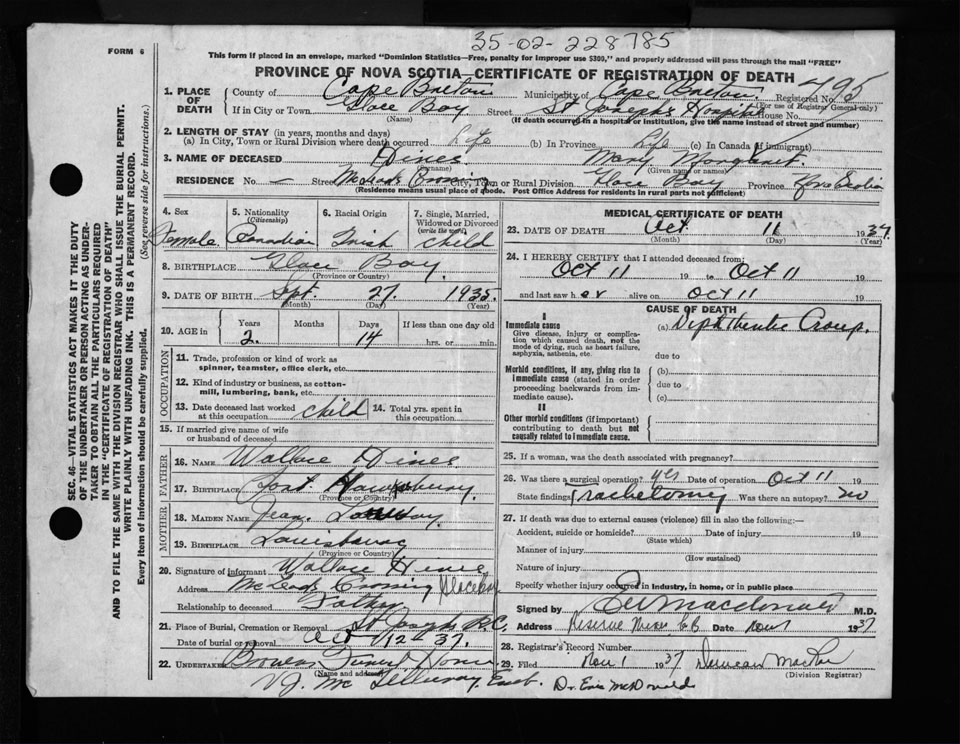 35-02-228785
FORM 6
This form if placed in an envelope, marked "Dominion Statistics—Free, penalty for improper use $300," and properly addressed will pass through the mail "FREE"
PROVINCE OF NOVA SCOTIA—CERTIFICATE OF REGISTRATION OF DEATH
1. PLACE OF DEATH County of Cape Breton Municipality of Cape Breton Registered No. 495
(For use of Registrar General only)
If in City or Town Glace Bay Street St Joseph's Hospital House No.
(Name) (If death occurred in a hospital or institution, give the name instead of street and number)
2. LENGTH OF STAY (in years, months and days)
(a) In City, Town or Rural Division where death occurred Life (b) In Province Life (c) In Canada (if immigrant)
3. NAME OF DECEASED Hines Mary Margaret
(Surname) (Given name or names)
RESIDENCE No. — Street McLeods Crossing City, Town or Rural Division Glace Bay Province Nova Scotia
(Residence means usual place of abode. Post Office Address for residents in rural parts not sufficient)
4. Sex Female
5. Nationality (Citizenship) Canadian
6. Racial Origin Irish
7. Single, Married, Widowed or Divorced (write the word) child
8. BIRTHPLACE Glace Bay
(Province or Country)
9. DATE OF BIRTH Sept. 27 1935
(Month) (Day) (Year)
10. AGE in Years 2 Months Days 14 If less than one day old hrs. or min.
OCCUPATION
11. Trade, profession or kind of work as spinner, teamster, office clerk, etc.
12. Kind of industry or business, as cotton-mill, lumbering, bank, etc.
13. Date deceased last worked at this occupation child 14. Total yrs. spent in this occupation
15. If married give name of wife or husband of deceased
FATHER
16. NAME Wallace Hines
17. BIRTHPLACE Port Hawkesbury
(Province or Country)
MOTHER
18. MAIDEN NAME Jean
19. BIRTHPLACE Louisbourg
(Province or Country)
20. Signature of informant Wallace Hines
Address McLeod Crossing Glace Bay
Relationship to deceased Father
21. Place of Burial, Cremation or Removal St Josephs R.C.
Date of burial or removal Oct 12 - 37
22. UNDERTAKER Funeral Home
(Name and address)
V.J. Mc Gillivray, Emb. Dr. Eric McDonald
MEDICAL CERTIFICATE OF DEATH
23. DATE OF DEATH Oct. 11 1937
(Month) (Day) (Year)
24. I HEREBY CERTIFY that I attended deceased from:
Oct 11 19 to Oct 11 19
and last saw her alive on Oct 11 19
CAUSE OF DEATH
I
Immediate cause
Give disease, injury or complication which caused death, not the mode of dying, such as heart failure, asphyxia, asthenia, etc.
(a) Diphtheritic Croup.
due to
Morbid conditions, if any, giving rise to immediate cause (stated in order proceeding backwards from immediate cause).
(b)
due to
(c)
II
Other morbid conditions (if important) contributing to death but not causally related to immediate cause.
25. If a woman, was the death associated with pregnancy?
26. Was there a surgical operation? yes Date of operation Oct 11 19
State findings Tracheotomy Was there an autopsy? no
27. If death was due to external causes (violence) fill in also the following:—
Accident, suicide or homicide? Date of injury 19
(State which)
Manner of injury
(How sustained)
Nature of injury
Specify whether injury occurred in industry, in home, or in public place
Signed by Macdonald M.D.
Address Reserve Mines CB Date Nov 1 1937
28. Registrar's Record Number
29. Filed Nov 1 1937 Duncan
(Division Registrar)
SEC. 46—VITAL STATISTICS ACT MAKES IT THE DUTY OF THE UNDERTAKER OR PERSON ACTING AS UNDERTAKER TO OBTAIN ALL THE PARTICULARS REQUIRED IN THE "CERTIFICATE OF REGISTRATION OF DEATH" AND TO FILE THE SAME WITH THE DIVISION REGISTRAR WHO SHALL ISSUE THE BURIAL PERMIT.
WRITE PLAINLY WITH UNFADING INK. THIS IS A PERMANENT RECORD.
Every item of information should be carefully supplied. (See reverse side for instructions.)